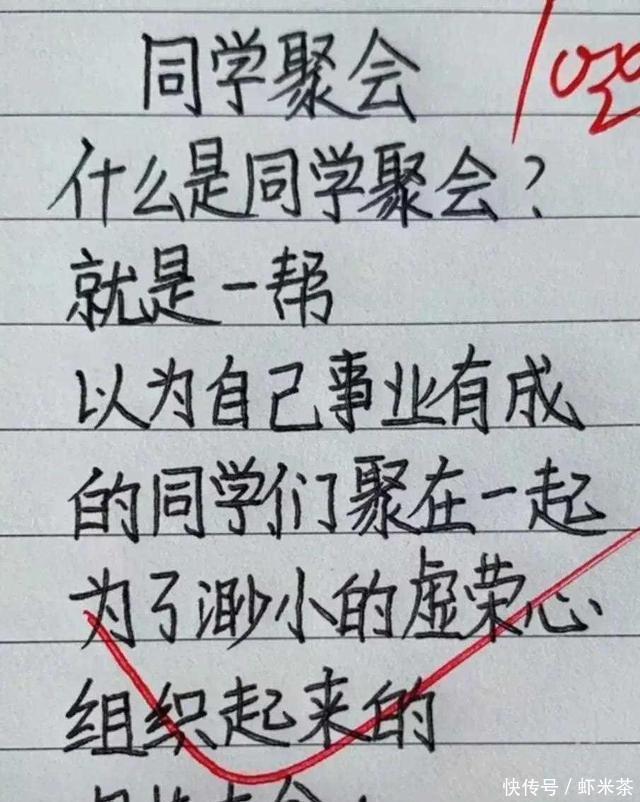 同学聚会
100
什么是同学聚会?
就是一帮
以为自己事业有成
的同学们聚在一起
为了渺小的虚荣心
组织起来的
快传号/虾米茶